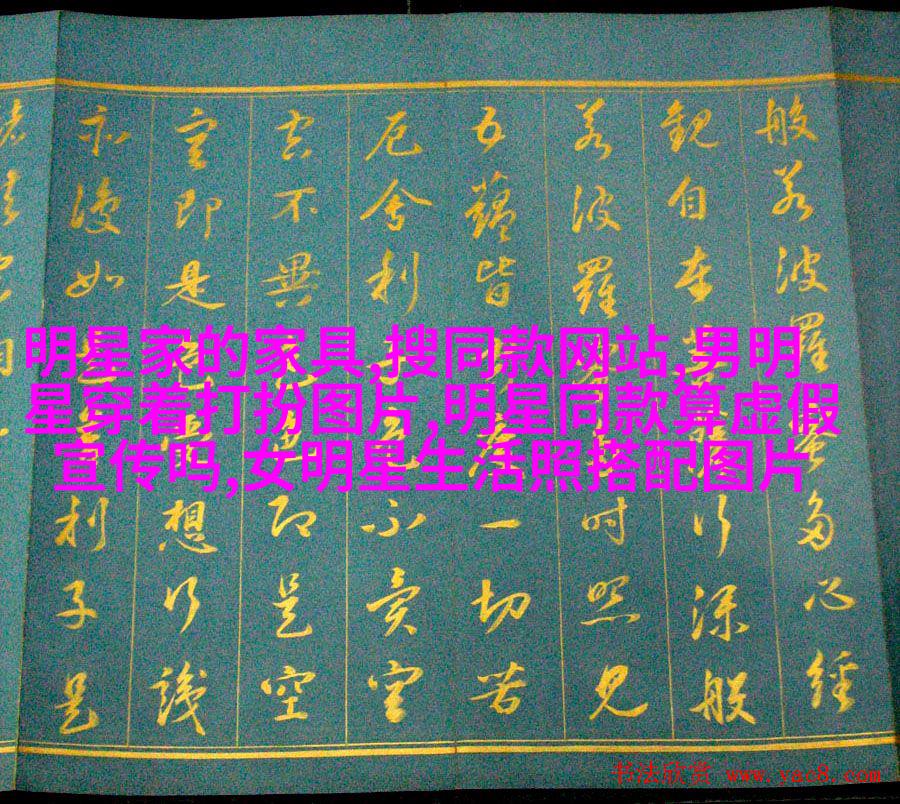 般若波羅蜜多心經
觀自在菩薩行深般
若波羅蜜多時照見
五蘊皆空度一切苦
厄舍利子色不異空
空不異色色即是空
空即是色受想行識
亦復如是舍利子是
明星家的家具,搜同款网站,男明
星穿着打扮图片,明星同款算虚假
宣传吗,女明星生活照搭配图片
书法欣赏 www.yac8.com